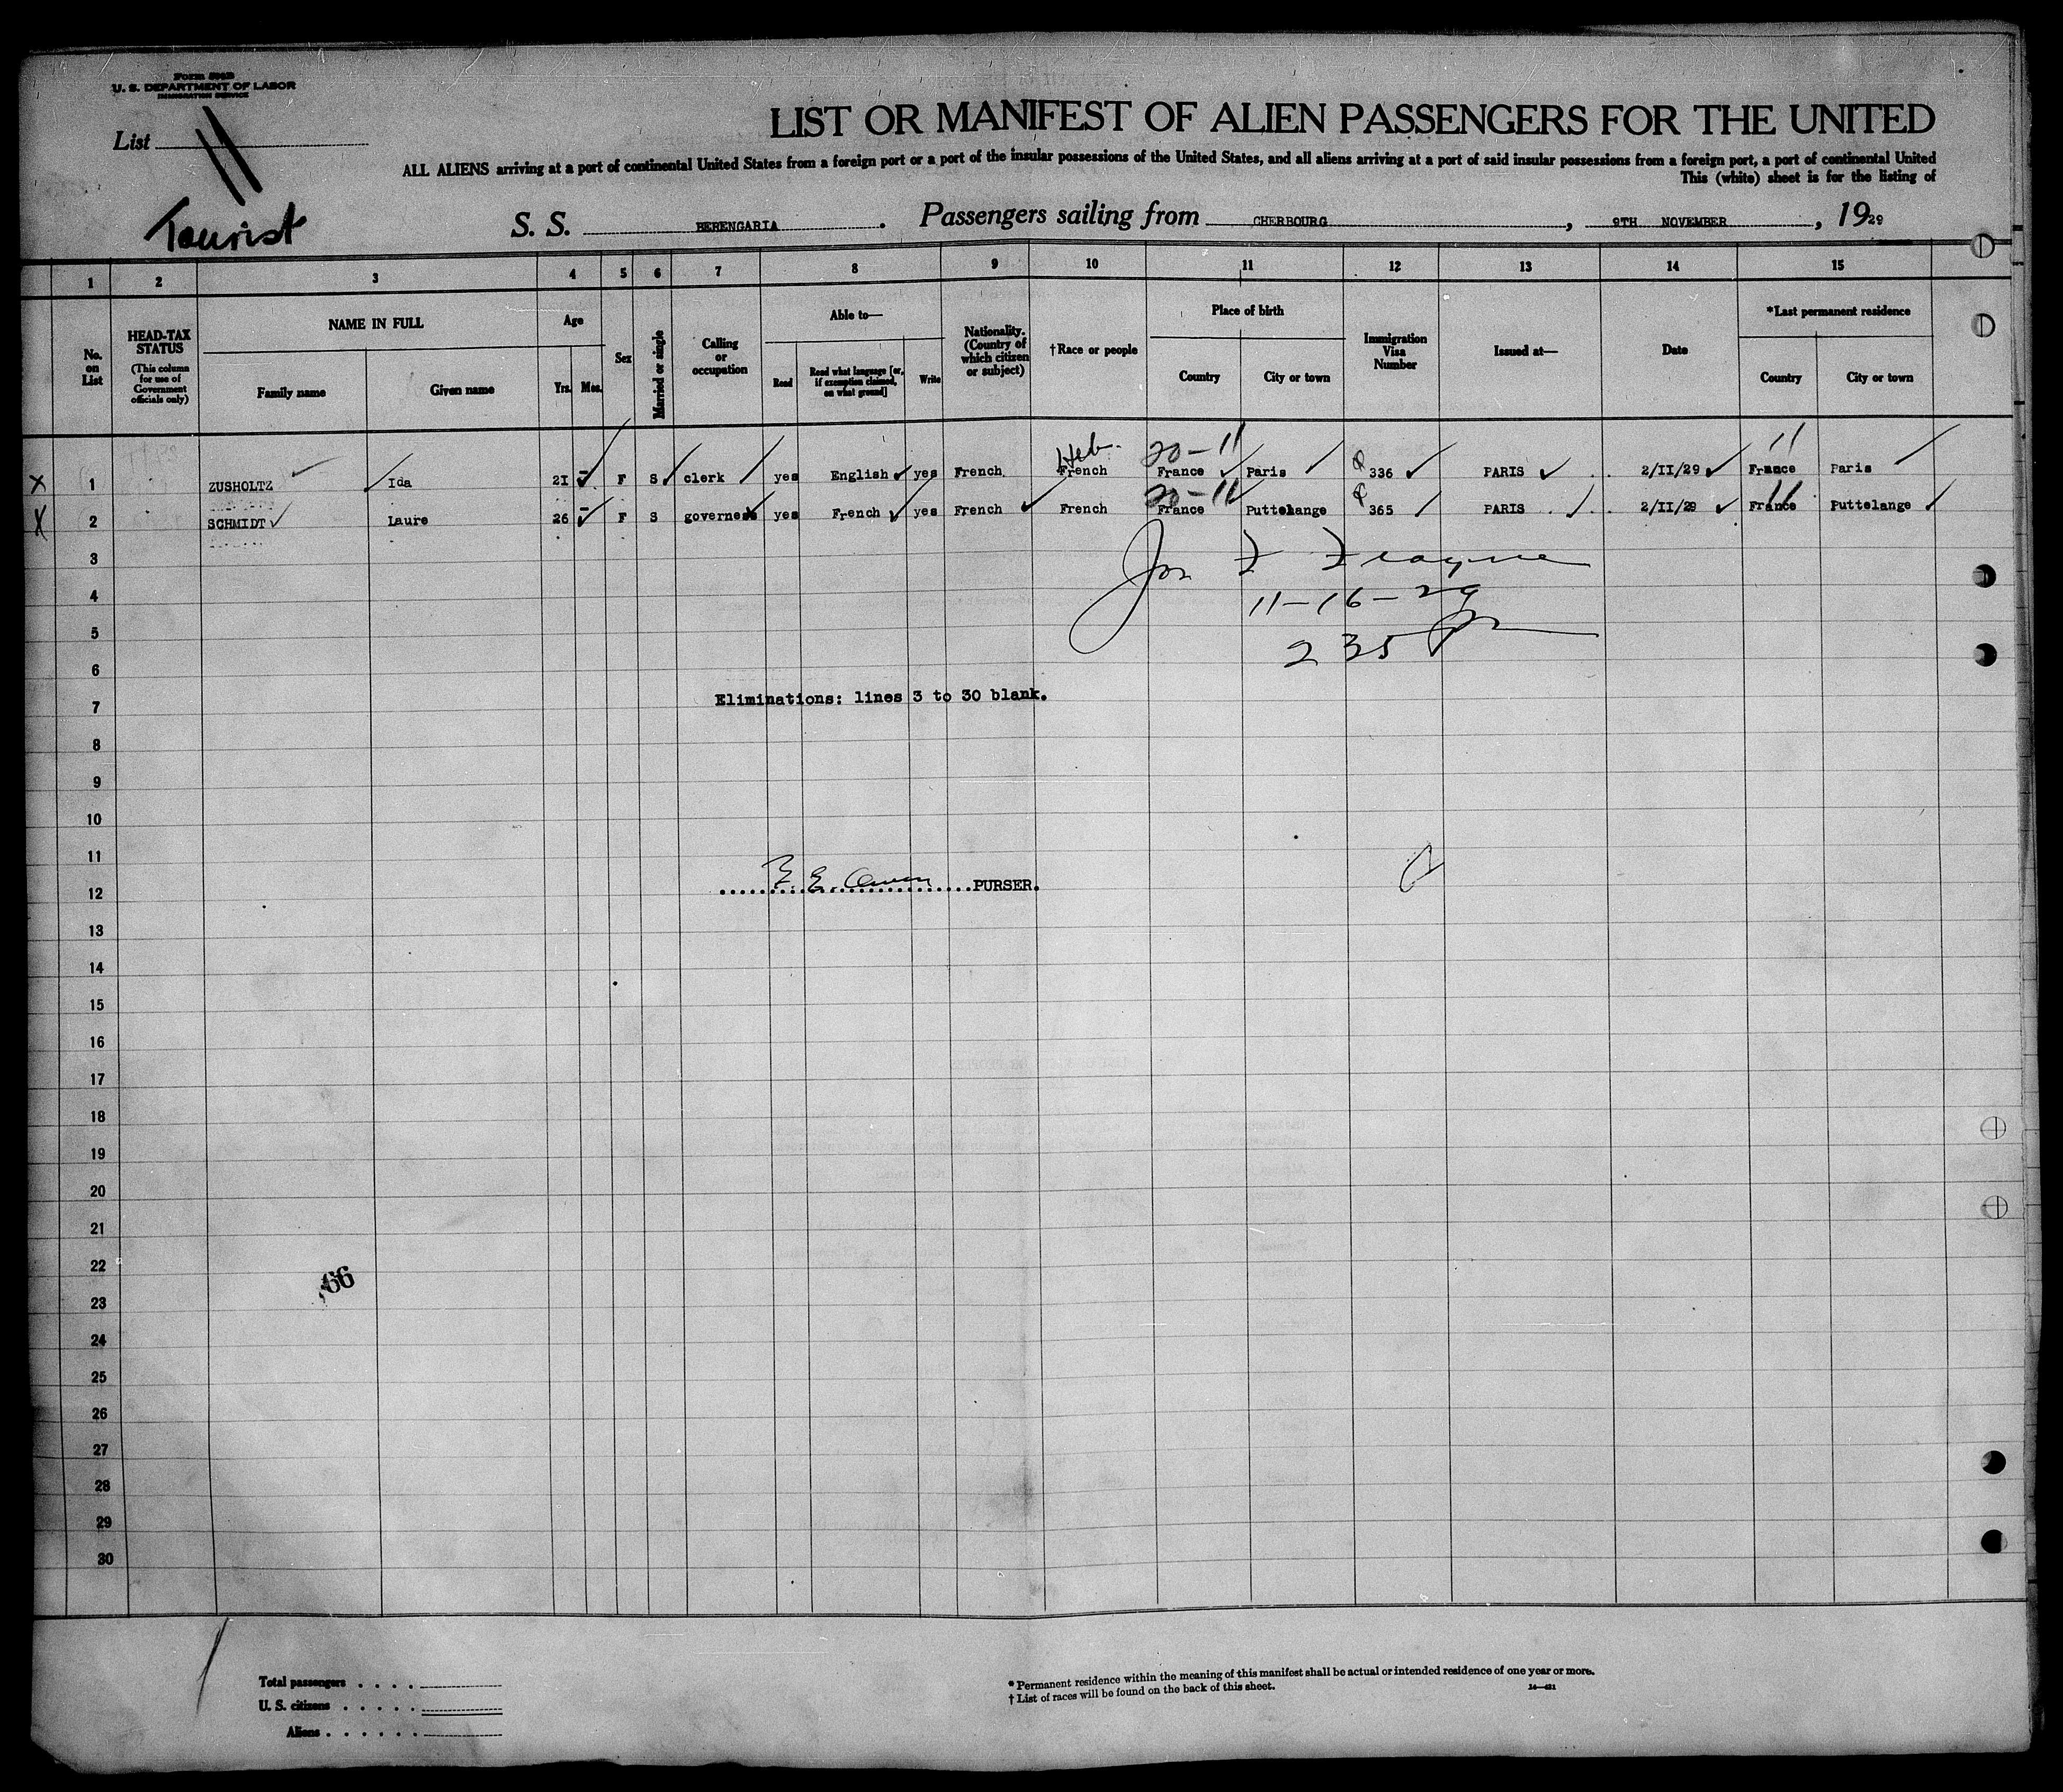 U. S. DEPARTMENT OF LABOR
IMMIGRATION SERVICE
List 11
Tourist
LIST OR MANIFEST OF ALIEN PASSENGERS FOR THE UNITED
ALL ALIENS arriving at a port of continental United States from a foreign port or a port of the insular possessions of the United States, and all aliens arriving at a port of said insular possessions from a foreign port, a port of continental United
This (white) sheet is for the listing of
S. S. BERENGARIA. Passengers sailing from CHERBOURG, 9TH NOVEMBER, 1929
1 2 3 4 5 6 7 8 9 10 11 12 13 14 15
No. on List
HEAD-TAX STATUS (This column for use of Government officials only)
NAME IN FULL
Family name Given name
Age
Yrs. Mos.
Sex
Married or single
Calling or occupation
Able to—
Read Read what language [or, if exemption claimed, on what ground] Write
Nationality. (Country of which citizen or subject)
†Race or people
Place of birth
Country City or town
Immigration Visa Number
Issued at—
Date
*Last permanent residence
Country City or town
Heb. 20-11 11
1 ZUSHOLTZ Ida 21 - F S clerk yes English yes French French France Paris Q 336 PARIS 2/II/29 France Paris
20-11 11
2 SCHMIDT Laure 26 - F S governess yes French yes French French France Puttelange Q 365 PARIS 2/II/29 France Puttelange
3
4 11-16-29
5 2 35
6
7 Eliminations: lines 3 to 30 blank.
8
9
10
11
12 PURSER.
13
14
15
16
17
18
19
20
21
22
66
23
24
25
26
27
28
29
30
Total passengers
U. S. citizens
Aliens
* Permanent residence within the meaning of this manifest shall be actual or intended residence of one year or more.
† List of races will be found on the back of this sheet.